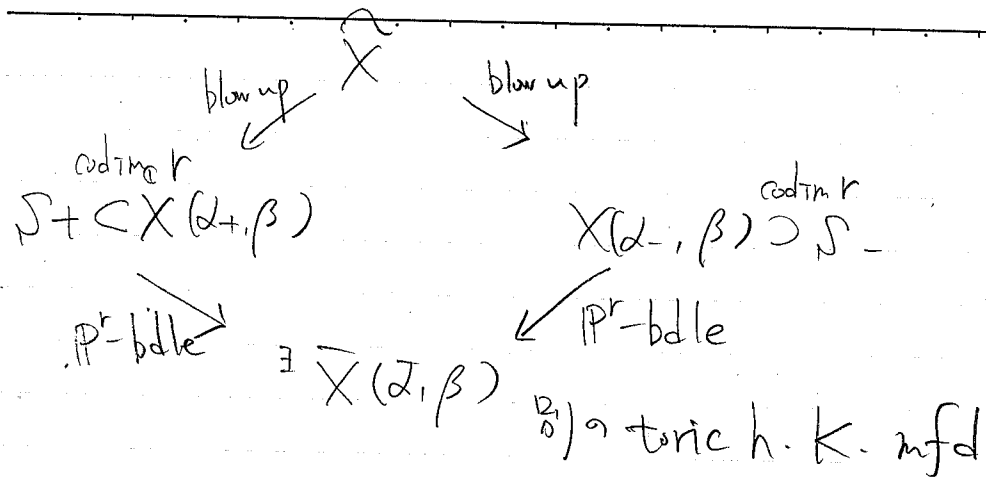 X̃
blow up blow up
codim_C r
S+ ⊂ X(α+, β)
codim r
X(α-, β) ⊃ S-
P^r-bdle P^r-bdle
∃ X̄(ᾱ, β) 別の toric h. K. mfd